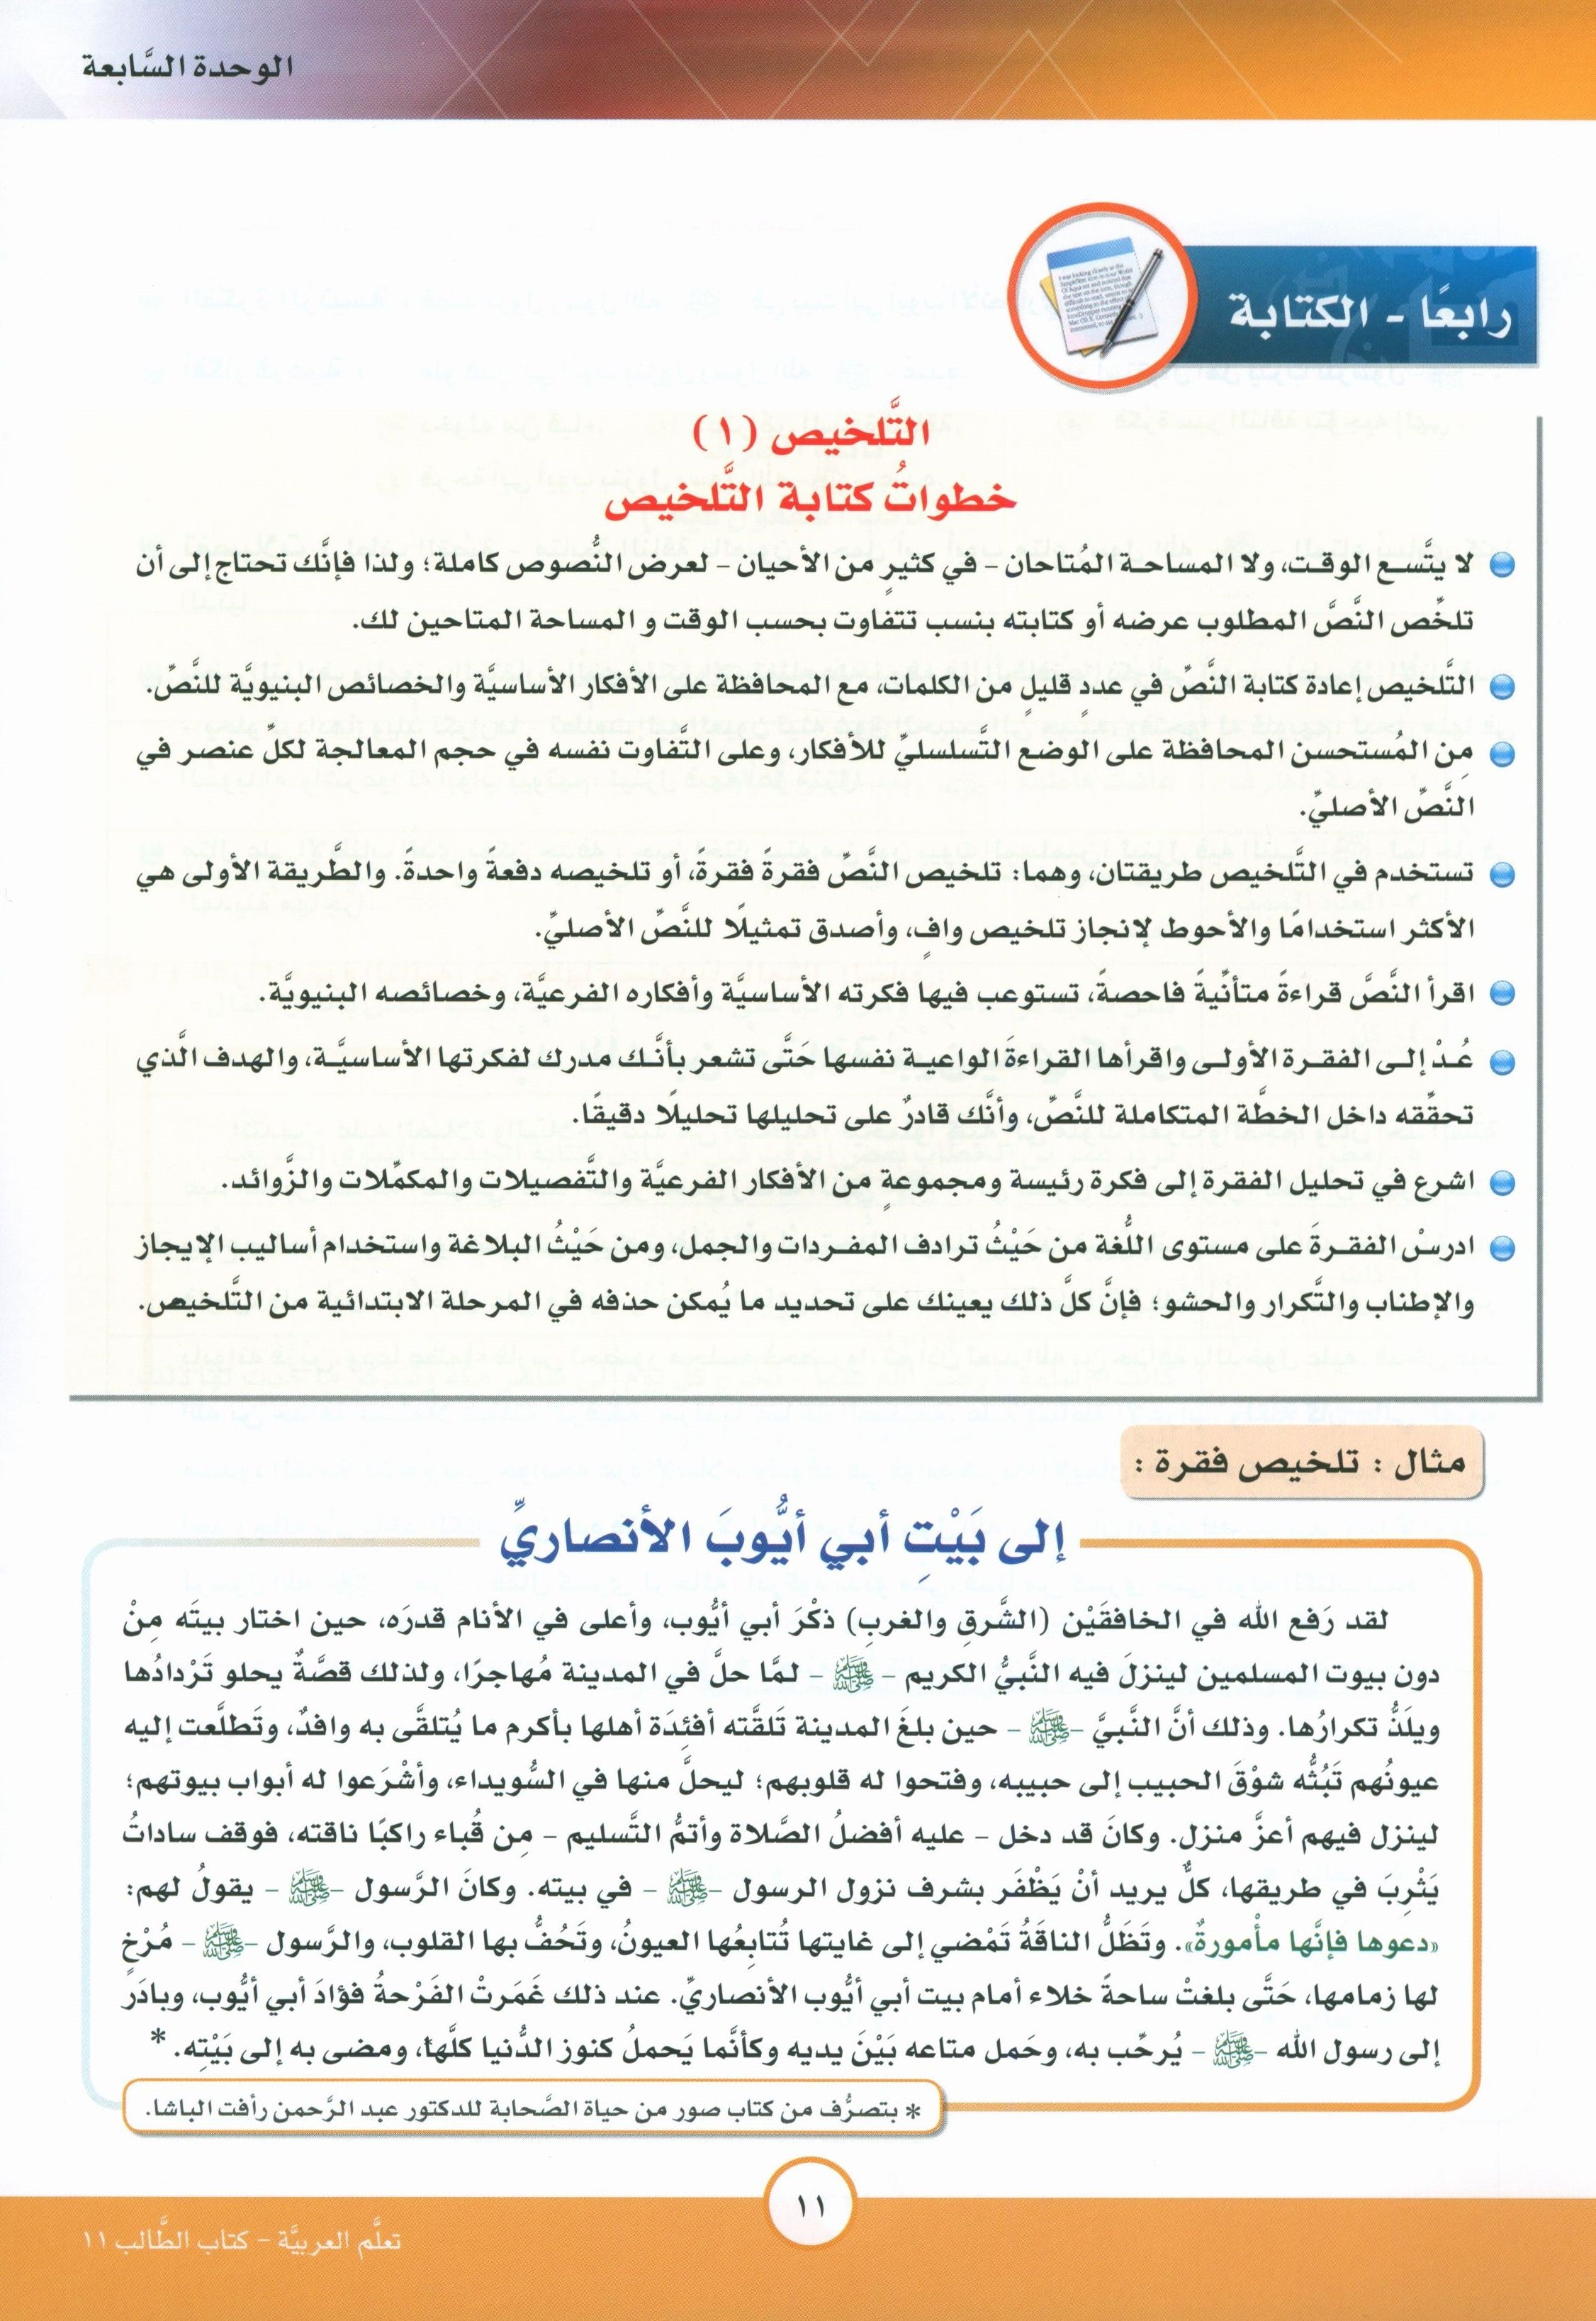 الوحدة السَّابعة
رابعًا - الكتابة
التَّلخيص (١)
خطواتُ كتابة التَّلخيص
لا يتَّسع الوقت، ولا المساحة المُتاحان - في كثيرٍ من الأحيان - لعرض النُّصوص كاملة؛ ولذا فإنَّك تحتاج إلى أن
تلخِّص النَّصَّ المطلوب عرضه أو كتابته بنسب تتفاوت بحسب الوقت و المساحة المتاحين لك.
التَّلخيص إعادة كتابة النَّصِّ في عددٍ قليلٍ من الكلمات، مع المحافظة على الأفكار الأساسيَّة والخصائص البنيويَّة للنَّصِّ.
مِن المُستحسن المحافظة على الوضع التَّسلسليِّ للأفكار، وعلى التَّفاوت نفسه في حجم المعالجة لكلِّ عنصر في
النَّصِّ الأصليِّ.
تستخدم في التَّلخيص طريقتان، وهما: تلخيص النَّصِّ فقرةً فقرةً، أو تلخيصه دفعةً واحدةً. والطَّريقة الأولى هي
الأكثر استخدامًا والأحوط لإنجاز تلخيص وافٍ، وأصدق تمثيلًا للنَّصِّ الأصليِّ.
اقرأ النَّصَّ قراءةً متأنِّيةً فاحصةً، تستوعب فيها فكرته الأساسيَّة وأفكاره الفرعيَّة، وخصائصه البنيويَّة.
عُدْ إلى الفقرة الأولى واقرأها القراءةَ الواعية نفسها حَتَّى تشعر بأنَّك مدرك لفكرتها الأساسيَّة، والهدف الَّذي
تحقِّقه داخل الخطَّة المتكاملة للنَّصِّ، وأنَّك قادرٌ على تحليلها تحليلًا دقيقًا.
اشرع في تحليل الفقرة إلى فكرة رئيسة ومجموعةٍ من الأفكار الفرعيَّة والتَّفصيلات والمكمِّلات والزَّوائد.
ادرسْ الفقرةَ على مستوى اللُّغة من حَيْثُ ترادف المفردات والجمل، ومن حَيْثُ البلاغة واستخدام أساليب الإيجاز
والإطناب والتَّكرار والحشو؛ فإنَّ كلَّ ذلك يعينك على تحديد ما يُمكن حذفه في المرحلة الابتدائية من التَّلخيص.
مثال : تلخيص فقرة :
إلى بَيْتِ أبي أيُّوبَ الأنصاريِّ
لقد رَفع الله في الخافقَيْن (الشَّرقِ والغربِ) ذكْرَ أبي أيُّوب، وأعلى في الأنام قدرَه، حين اختار بيتَه مِنْ
دون بيوت المسلمين لينزلَ فيه النَّبيُّ الكريم - ﷺ - لمَّا حلَّ في المدينة مُهاجرًا، ولذلك قصَّةٌ يحلو تَرْدادُها
ويلَذُّ تكرارُها. وذلك أنَّ النَّبيَّ - ﷺ - حين بلغَ المدينة تَلقَّته أفئِدَة أهلها بأكرم ما يُتلقَّى به وافدٌ، وتَطلَّعت إليه
عيونُهم تَبُثُّه شوْقَ الحبيب إلى حبيبه، وفتحوا له قلوبهم؛ ليحلَّ منها في السُّويداء، وأشْرَعوا له أبواب بيوتهم؛
لينزل فيهم أعزَّ منزل. وكانَ قد دخل - عليه أفضلُ الصَّلاة وأتمُّ التَّسليم - مِن قُباء راكبًا ناقته، فوقف ساداتُ
يَثْرِبَ في طريقها، كلٌّ يريد أنْ يَظْفَر بشرف نزول الرسول - ﷺ - في بيته. وكانَ الرَّسول - ﷺ - يقولُ لهم:
«دعوها فإنَّها مأْمورةٌ». وتَظَلُّ الناقَةُ تَمْضي إلى غايتها تُتابعُها العيونُ، وتَحُفُّ بها القلوب، والرَّسول - ﷺ - مُرْخٍ
لها زمامها، حَتَّى بلغتْ ساحةً خلاء أمام بيت أبي أيُّوب الأنصاريِّ. عند ذلك غَمَرتْ الفَرْحةُ فؤادَ أبي أيُّوب، وبادَر
إلى رسول الله - ﷺ - يُرحِّب به، وحَمل متاعه بَيْنَ يديه وكأنَّما يَحملُ كنوز الدُّنيا كلَّها، ومضى به إلى بَيْتِه. *
* بتصرُّف من كتاب صور من حياة الصَّحابة للدكتور عبد الرَّحمن رأفت الباشا.
١١
تعلَّم العربيَّة - كتاب الطَّالب ١١